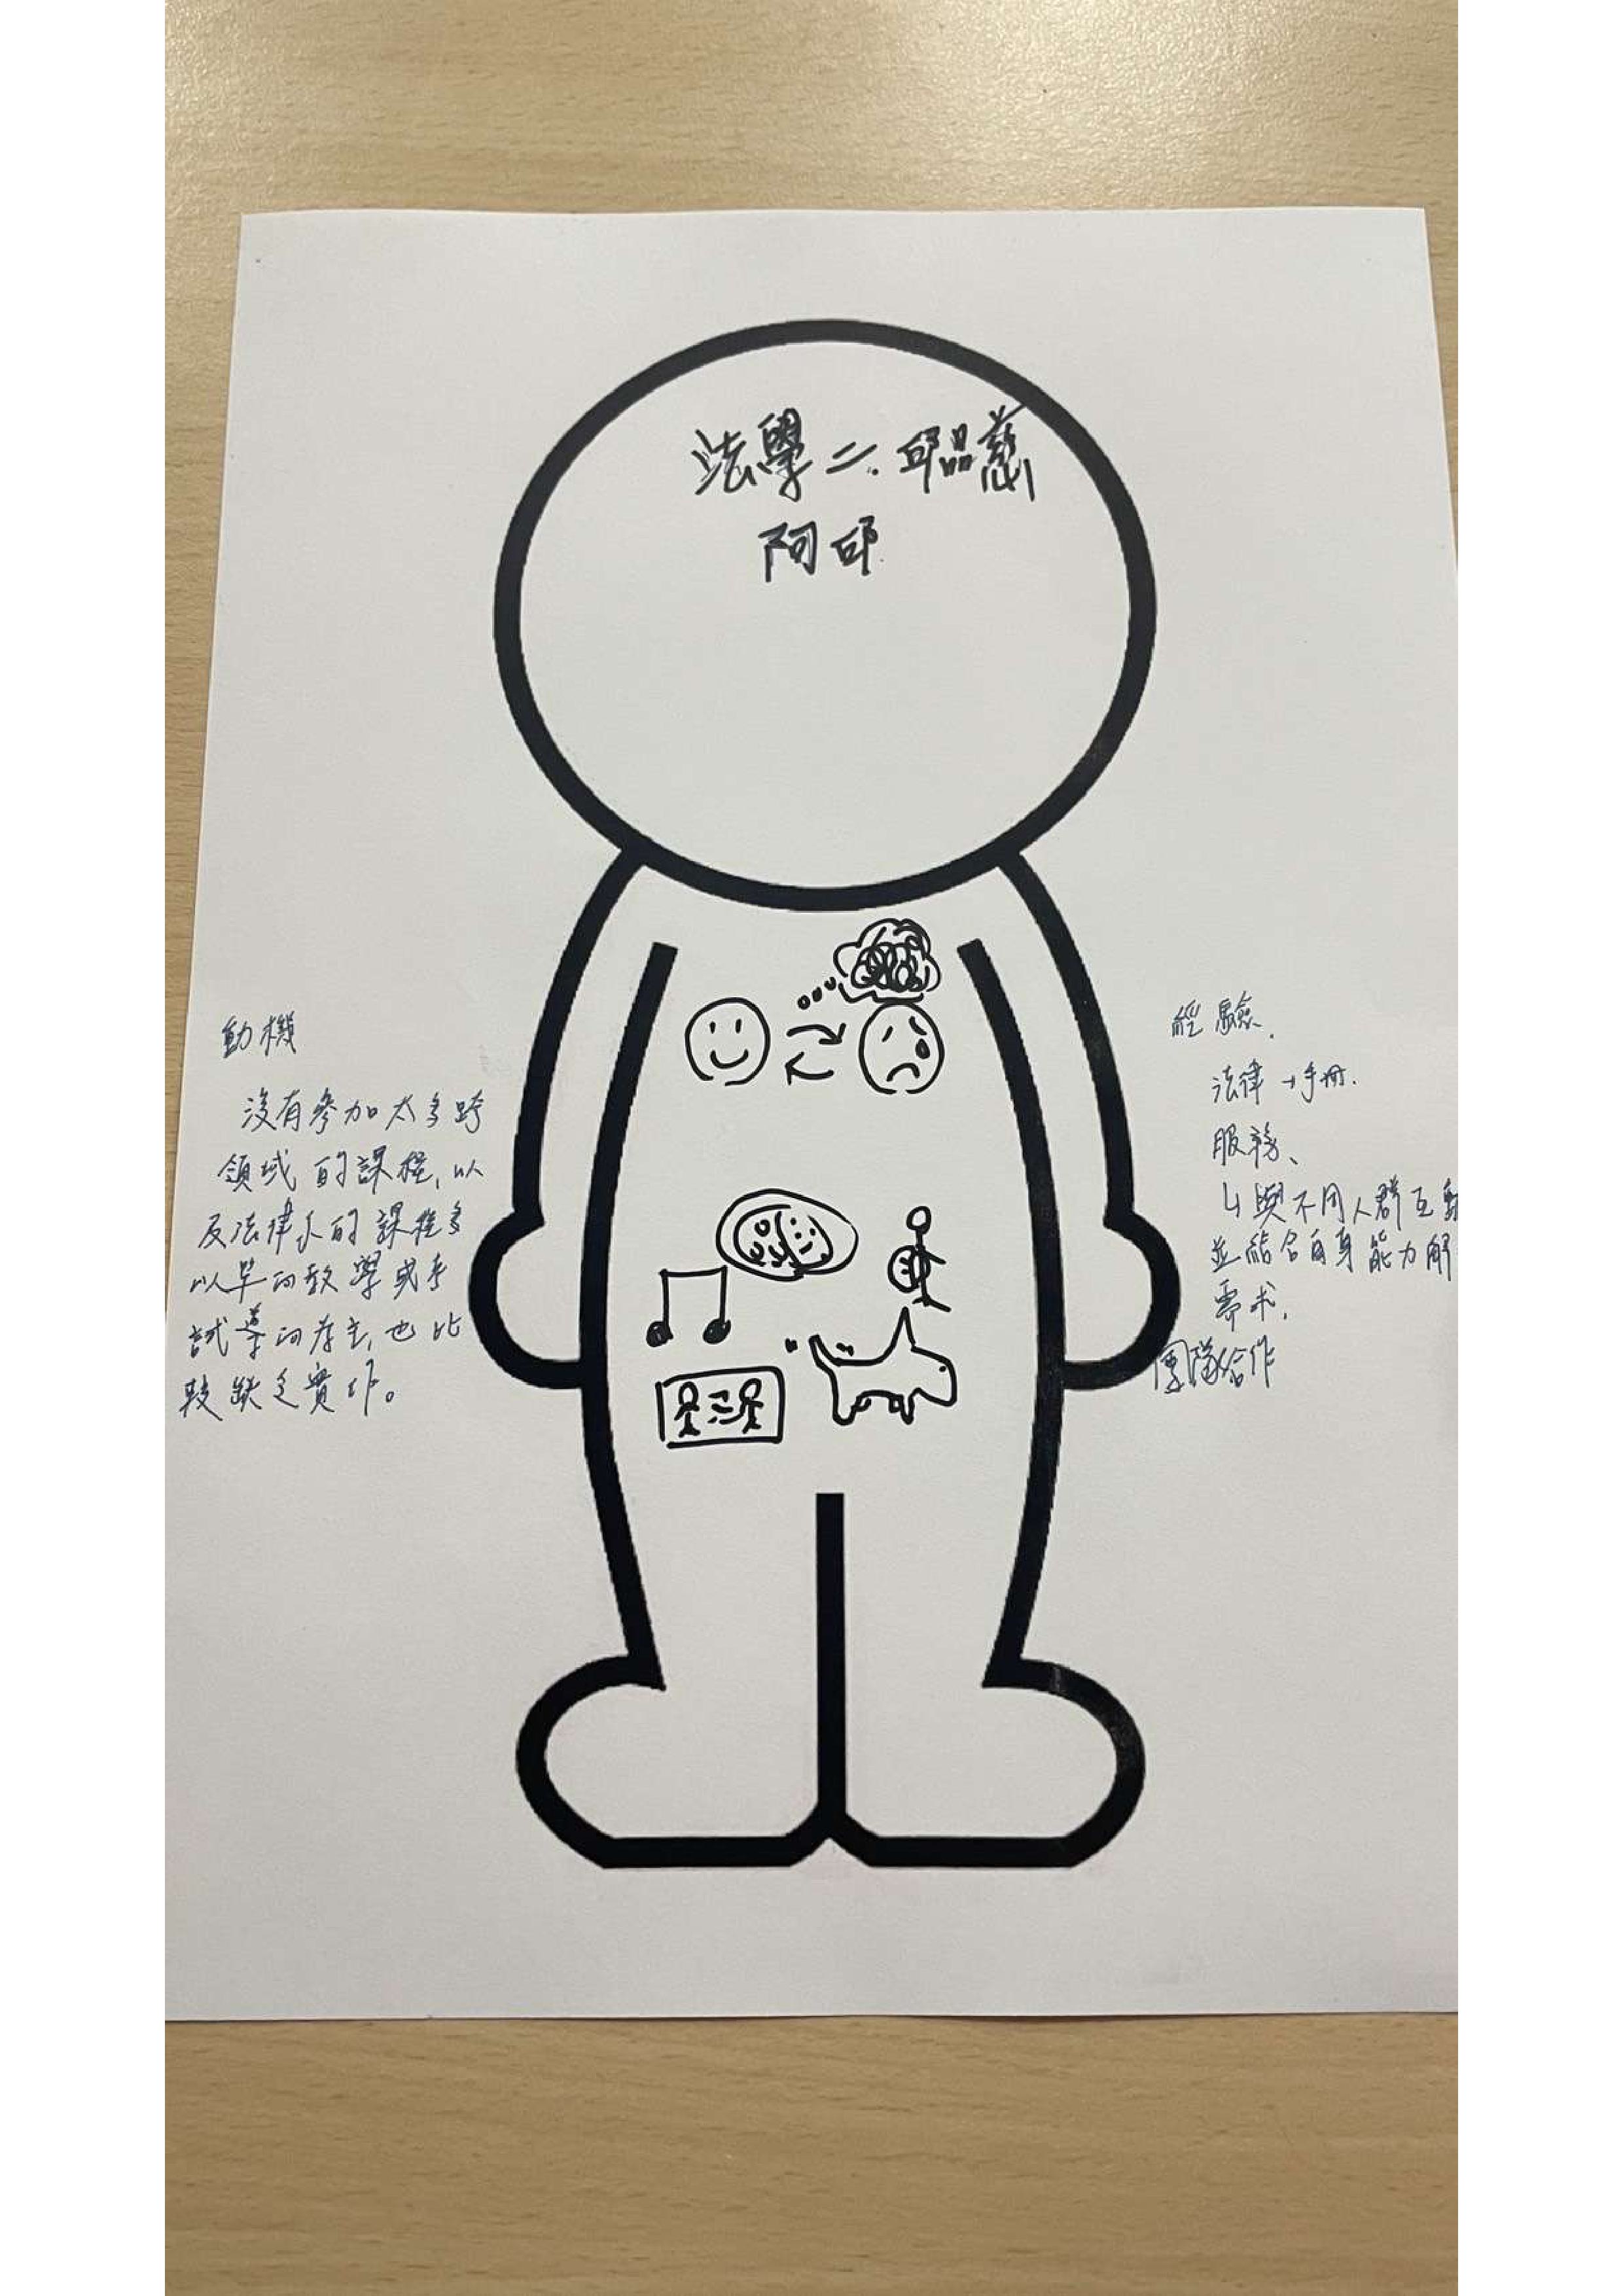 法學二. 邱品慈
阿邱
動機
沒有參加太多跨
領域的課程,以
及法律系的課程多
以單向教學或考
試為主,也比
較缺乏實作。
經驗.
法律→手冊.
服務、
↳與不同人群互動
並結合自身能力解
需求,
團隊合作